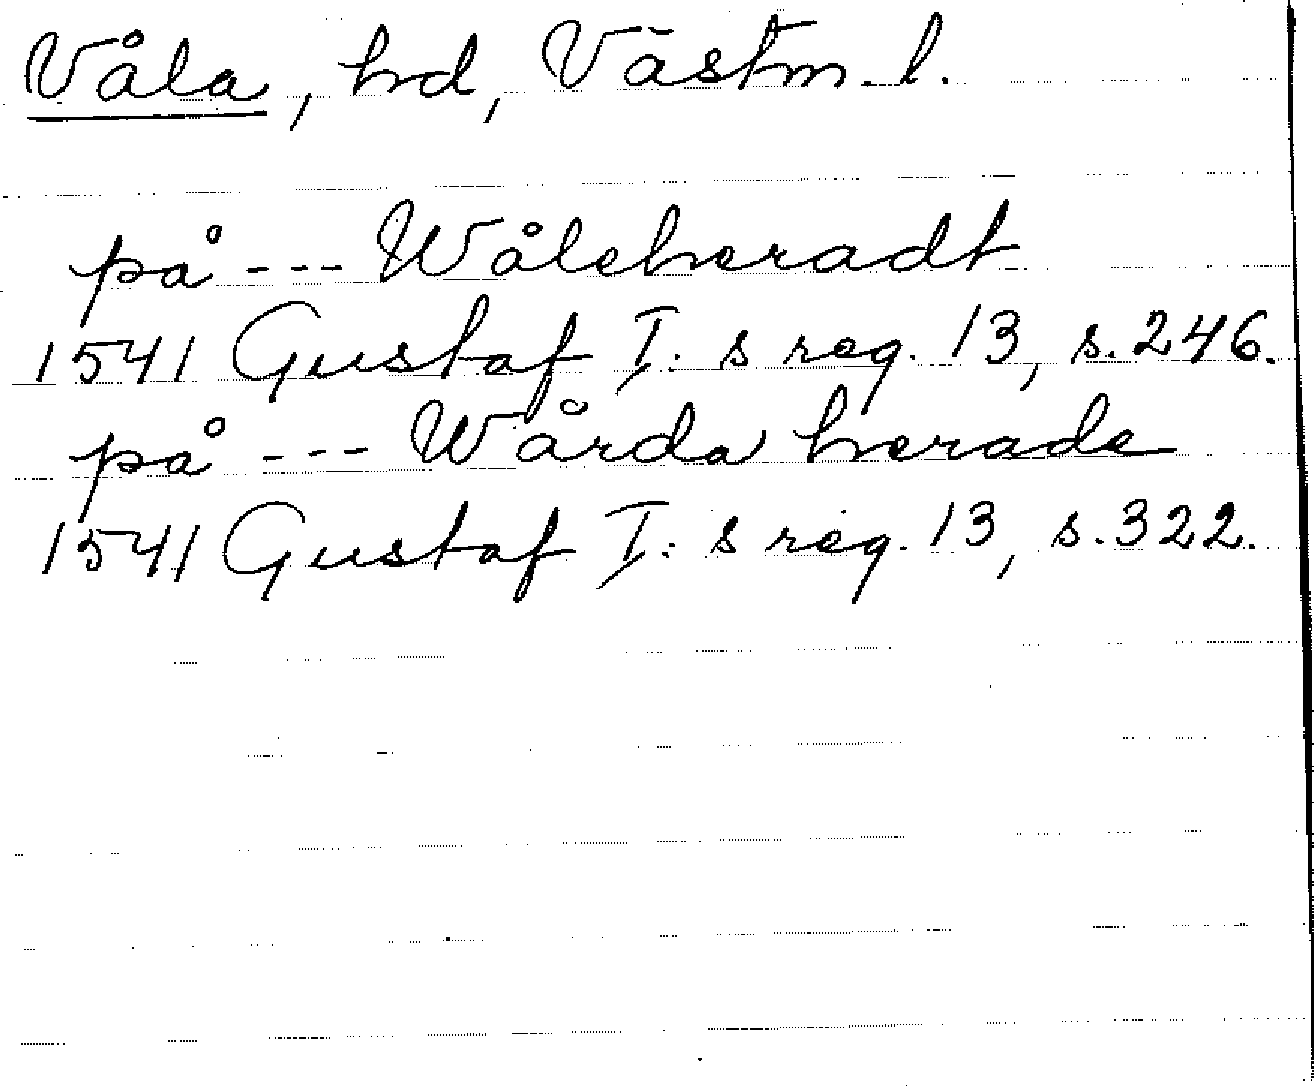 Våla, hd, Västm. l.
på --- Wåleheradt
1541 Gustaf I:s reg. 13, s. 246.
på --- Wårda herade
1541 Gustaf I:s reg. 13, s. 322.